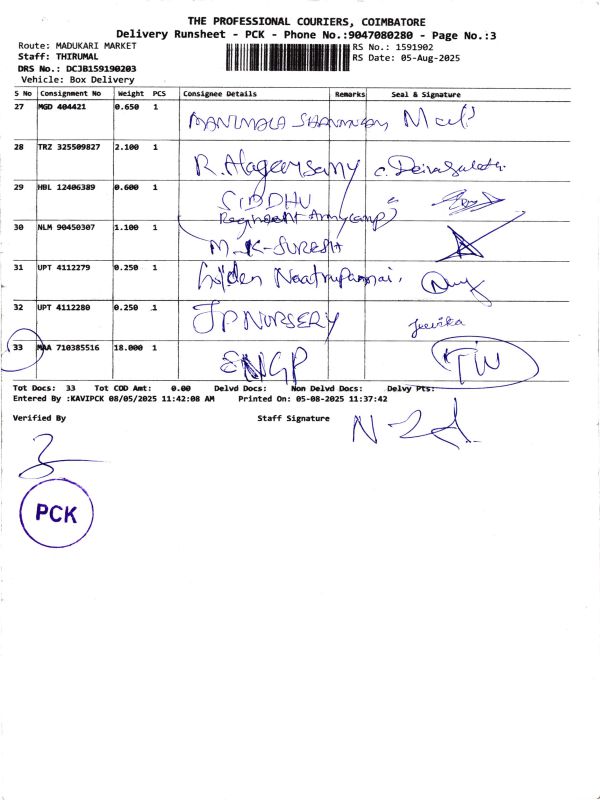 THE PROFESSIONAL COURIERS, COIMBATORE
Delivery Runsheet - PCK - Phone No.:9047080280 - Page No.:3
Route: MADUKARI MARKET
Staff: THIRUMAL
DRS No.: DCJB159190203
Vehicle: Box Delivery
RS No.: 1591902
RS Date: 05-Aug-2025
S No Consignment No Weight PCS Consignee Details Remarks Seal & Signature
27 MGD 404421 0.650 1
28 TRZ 325509827 2.100 1 R. Alagarsamy
29 HBL 12406389 0.600 1 SIDDHU
Regiment Army camp)
30 NLM 90450307 1.100 1 M-K-SURESH
31 UPT 4112279 0.250 1 Golden
32 UPT 4112280 0.250 1 JP NURSERY Jeevika
33 MAA 710385516 18.000 1 ENGP
Tot Docs: 33 Tot COD Amt: 0.00 Delvd Docs: Non Delvd Docs: Delvy Pts:
Entered By :KAVIPCK 08/05/2025 11:42:08 AM Printed On: 05-08-2025 11:37:42
Verified By Staff Signature
PCK